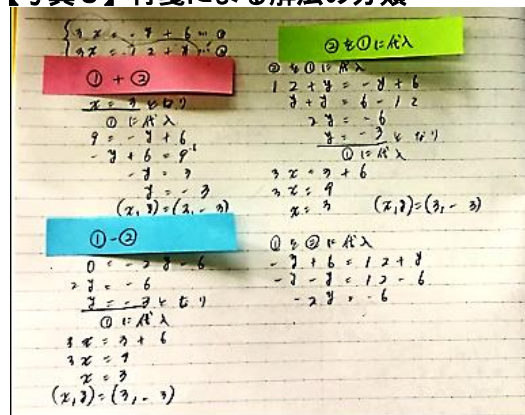 【写真5】付箋による解法の分類
3x = -y + 6 … ①
3x = 12 + y … ②
① + ②
x = 3 となり
①に代入
9 = -y + 6
-y + 6 = 9
-y = 3
y = -3
(x, y) = (3, -3)
① - ②
0 = -2y - 6
2y = -6
y = -3 となり
①に代入
3x = 3 + 6
3x = 9
x = 3
(x, y) = (3, -3)
②を①に代入
②を①に代入
12 + y = -y + 6
y + y = 6 - 12
2y = -6
y = -3 となり
①に代入
3x = 3 + 6
3x = 9
x = 3 (x, y) = (3, -3)
①を②に代入
-y + 6 = 12 + y
-y - y = 12 - 6
-2y = -6